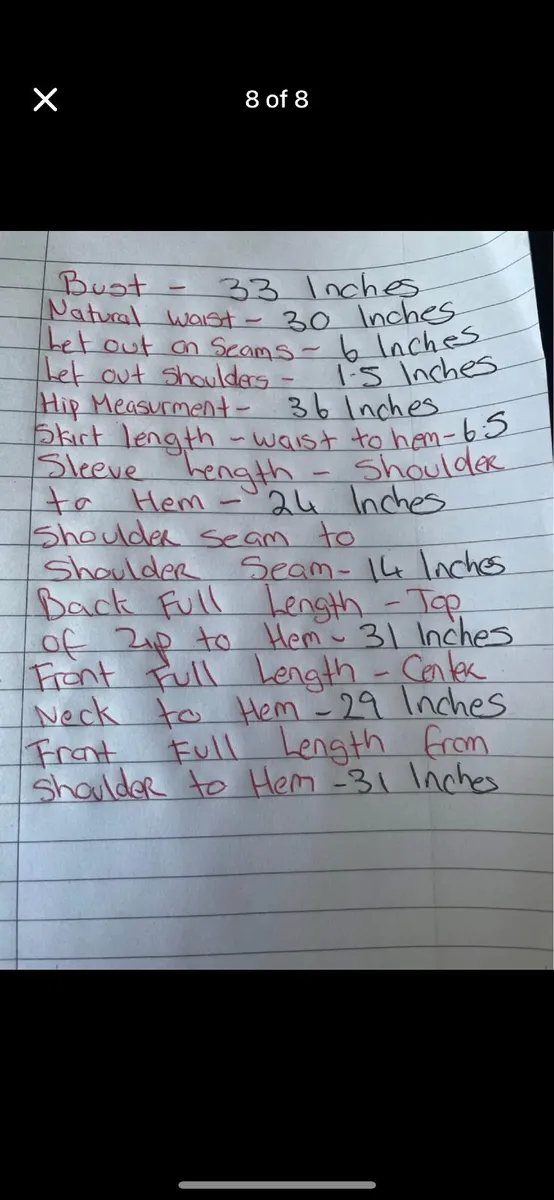 8 of 8
Bust - 33 Inches
Natural waist - 30 Inches
Let out on Seams - 6 Inches
Let out Shoulders - 1.5 Inches
Hip Measurment - 36 Inches
Skirt length - waist to hem - 6.5
Sleeve Length - Shoulder
to Hem - 24 Inches
Shoulder seam to
Shoulder Seam - 14 Inches
Back Full Length - Top
of Zip to Hem - 31 Inches
Front Full Length - Center
Neck to Hem - 29 Inches
Front Full Length from
Shoulder to Hem - 31 Inches